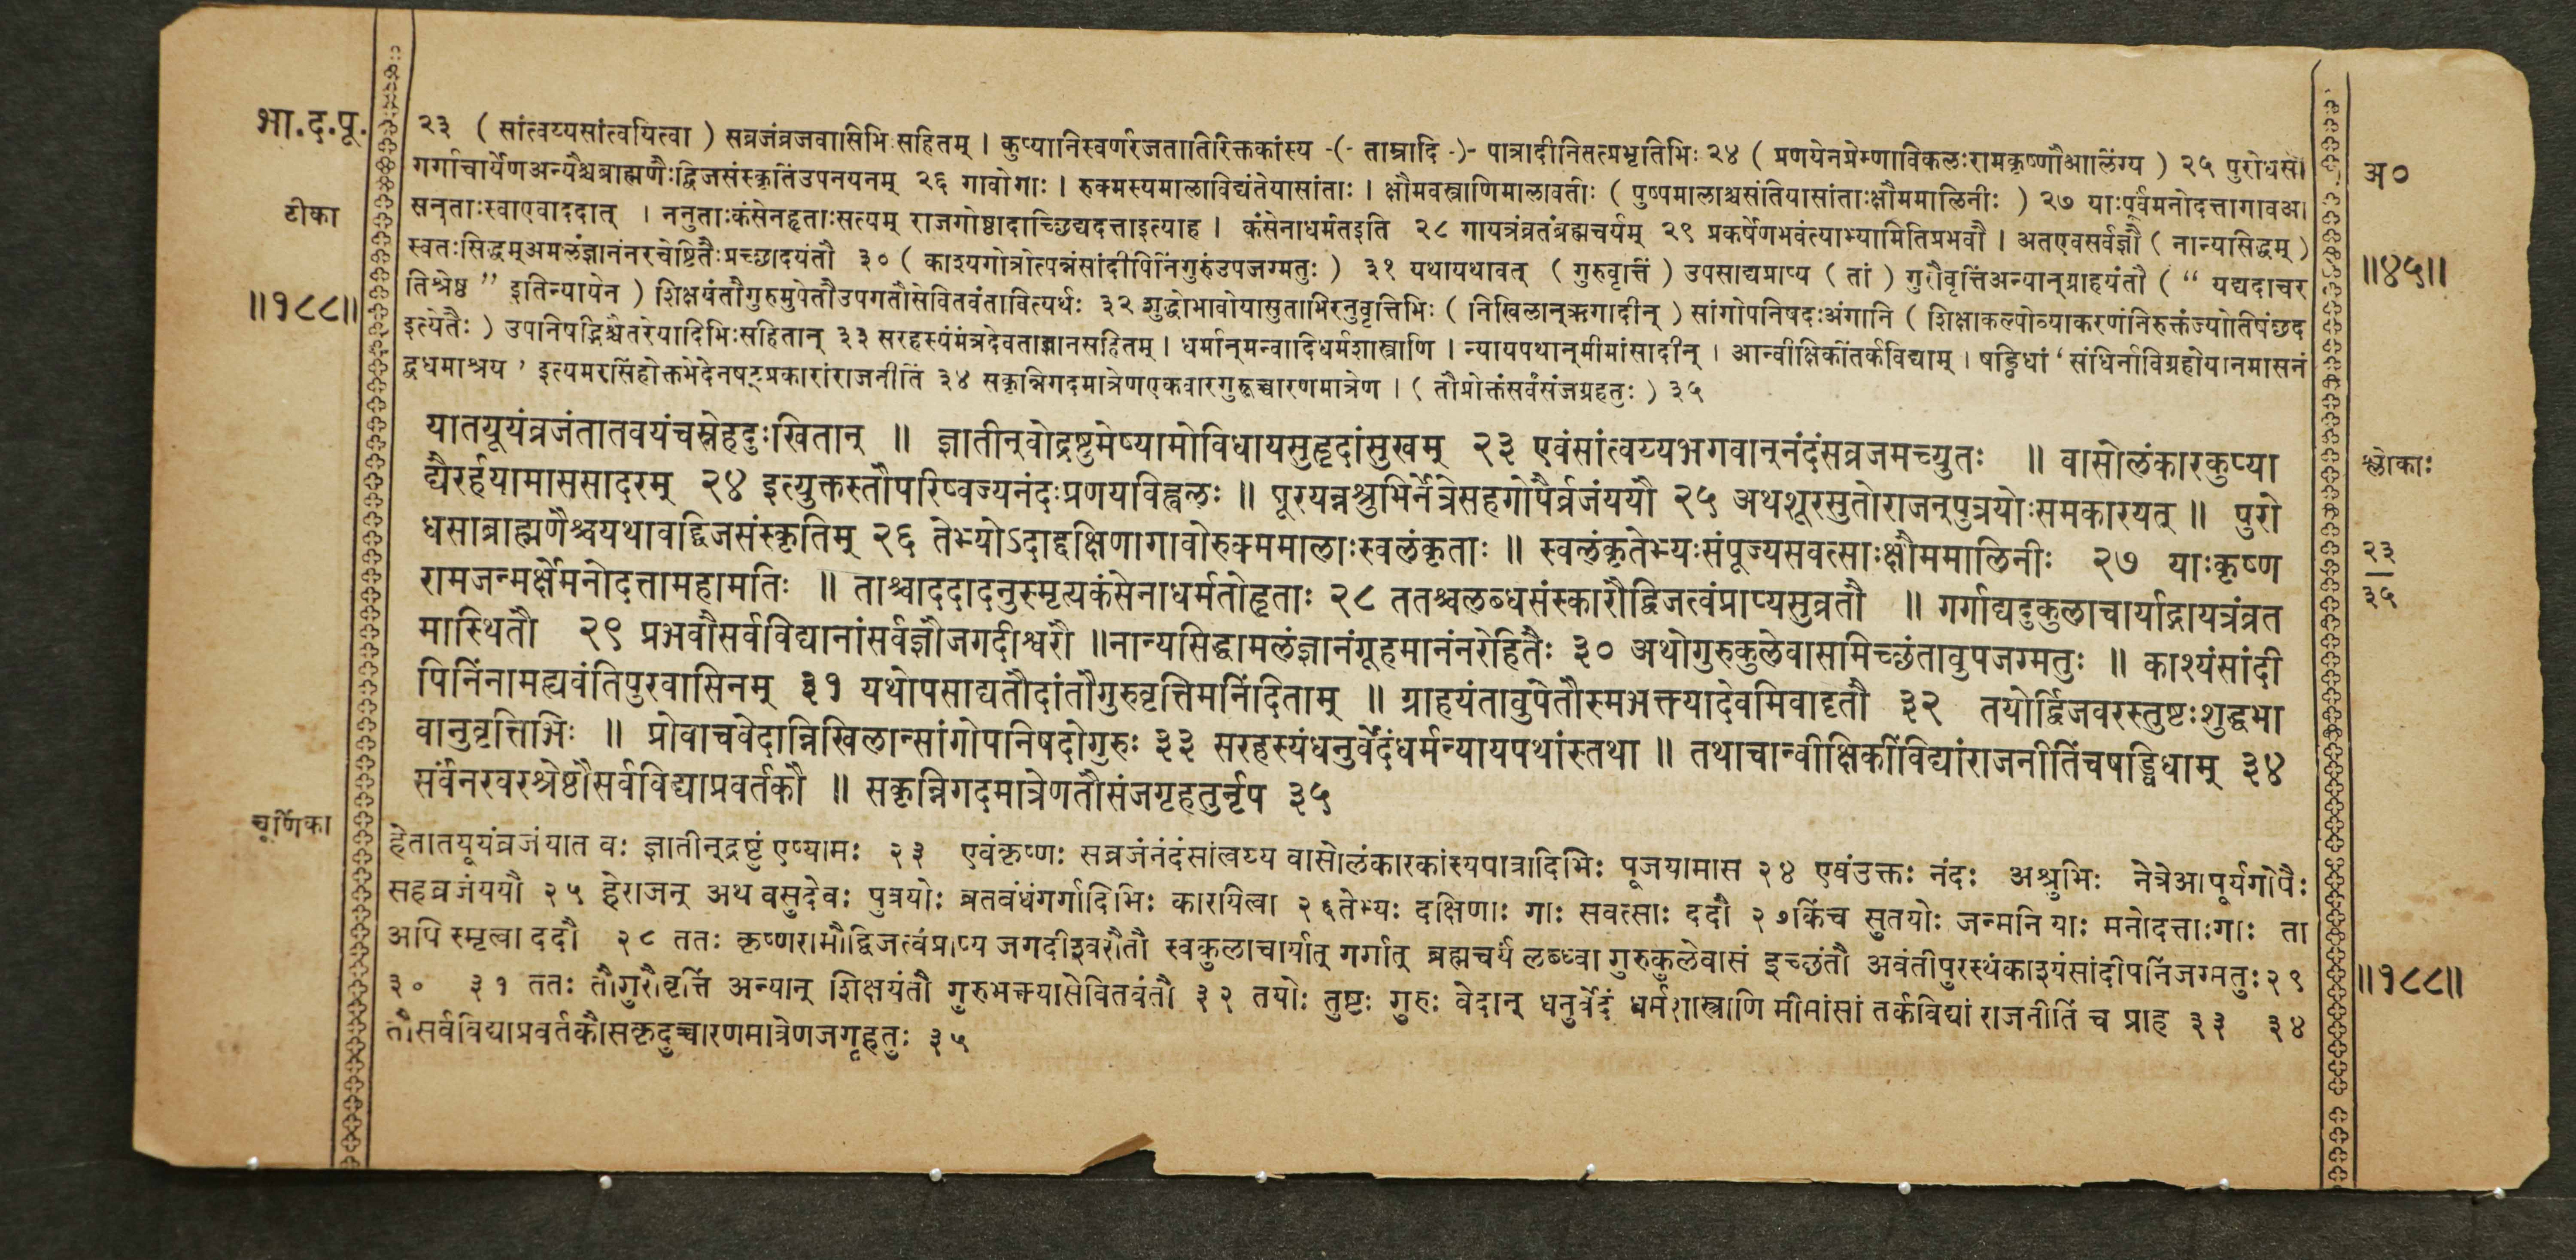 भा.द.पू.
टीका
॥१८८॥
२३ ( सांत्वय्यसांत्वयित्वा ) सव्रजंव्रजवासिभिःसहितम् । कुप्यानिस्वर्णरजतातिरिक्तकांस्य -(- ताम्रादि -)- पात्रादीनितत्प्रभृतिभिः २४ ( प्रणयेनप्रेम्णाविकलःरामकृष्णौआलिंग्य ) २५ पुरोधसा
गर्गाचार्येणअन्यैश्चब्राह्मणैःद्विजसंस्कृतिंउपनयनम् २६ गावोगाः । रुक्मस्यमालाविद्यंतेयासांताः । क्षौमवस्त्राणिमालावतीः ( पुष्पमालाश्चसंतियासांताःक्षौममालिनीः ) २७ याःपूर्वमनोदत्तागावआ
सन्ताःस्वाएवाददात् । ननुताःकंसेनहृताःसत्यम् राजगोष्ठादाच्छिद्यदत्ताइत्याह । कंसेनाधर्मतइति २८ गायत्रंव्रतंब्रह्मचर्यम् २९ प्रकर्षेणभवंत्याभ्यामितिप्रभवौ । अतएवसर्वज्ञौ ( नान्यसिद्धम् )
स्वतःसिद्धम्अमलंज्ञानंनरचेष्टितैःप्रच्छादयंतौ ३० ( काश्यगोत्रोत्पन्नंसांदीपिनिंगुरुंउपजग्मतुः ) ३१ यथायथावत् ( गुरुवृत्तिं ) उपसाद्यप्राप्य ( तां ) गुरौवृत्तिंअन्यान्ग्राहयंतौ ( “ यद्यदाचर
तिश्रेष्ठ ” इतिन्यायेन ) शिक्षयंतौगुरुमुपेतौउपगतौसेवितवंतावित्यर्थः ३२ शुद्धोभावोयासुताभिरनुवृत्तिभिः ( निखिलान्ऋगादीन् ) सांगोपनिषदःअंगानि ( शिक्षाकल्पोव्याकरणंनिरुक्तंज्योतिषंछद
इत्येतैः ) उपनिषद्भिश्चैतरेयादिभिःसहितान् ३३ सरहस्यंमंत्रदेवताज्ञानसहितम् । धर्मान्मन्वादिधर्मशास्त्राणि । न्यायपथान्मीमांसादीन् । आन्वीक्षिकींतर्कविद्याम् । षड्विधां ‘ संधिर्नाविग्रहोयानमासनं
द्वैधमाश्रय ’ इत्यमरसिंहोक्तभेदेनषट्प्रकारांराजनीतिं ३४ सकृन्निगदमात्रेणएकवारगुरूच्चारणमात्रेण । ( तौप्रोक्तंसर्वंसंजग्रहतुः ) ३५
यातयूयंव्रजंतातवयंचस्नेहदुःखितान् ॥ ज्ञातीन्वोद्रष्टुमेष्यामोविधायसुहृदांसुखम् २३ एवंसांत्वय्यभगवान्नंदंसव्रजमच्युतः ॥ वासोलंकारकुप्या
द्यैरर्हयामाससादरम् २४ इत्युक्तस्तौपरिष्वज्यनंदःप्रणयविह्वलः ॥ पूरयन्नश्रुभिर्नेत्रेसहगोपैर्व्रजंययौ २५ अथशूरसुतोराजन्पुत्रयोःसमकारयत् ॥ पुरो
धसाब्राह्मणैश्चयथावद्द्विजसंस्कृतिम् २६ तेभ्योऽदाद्दक्षिणागावोरुक्ममालाःस्वलंकृताः ॥ स्वलंकृतेभ्यःसंपूज्यसवत्साःक्षौममालिनीः २७ याःकृष्ण
रामजन्मर्क्षेमनोदत्तामहामतिः ॥ ताश्चाददादनुस्मृत्यकंसेनाधर्मतोहृताः २८ ततश्चलब्धसंस्कारौद्विजत्वंप्राप्यसुव्रतौ ॥ गर्गाद्यदुकुलाचार्याद्गायत्रंव्रत
मास्थितौ २९ प्रभवौसर्वविद्यानांसर्वज्ञौजगदीश्वरौ ॥नान्यसिद्धामलंज्ञानंगूहमानंनरेहितैः ३० अथोगुरुकुलेवासमिच्छंतावुपजग्मतुः ॥ काश्यंसांदी
पिनिंनामह्यवंतिपुरवासिनम् ३१ यथोपसाद्यतौदांतौगुरुवृत्तिमनिंदिताम् ॥ ग्राहयंतावुपेतौस्मभक्त्यादेवमिवादृतौ ३२ तयोर्द्विजवरस्तुष्टःशुद्धभा
वानुवृत्तिभिः ॥ प्रोवाचवेदान्निखिलान्सांगोपनिषदोगुरुः ३३ सरहस्यंधनुर्वेदंधर्मन्यायपथांस्तथा ॥ तथाचान्वीक्षिकींविद्यांराजनीतिंचषड्विधाम् ३४
सर्वंनरवरश्रेष्ठौसर्वविद्याप्रवर्तकौ ॥ सकृन्निगदमात्रेणतौसंजगृहतुर्नृप ३५
चूर्णिका
हेतातयूयंव्रजंयात वः ज्ञातीन्द्रष्टुं एष्यामः २३ एवंकृष्णः सव्रजंनंदंसांत्वय्य वासोलंकारकांस्यपात्रादिभिः पूजयामास २४ एवंउक्तः नंदः अश्रुभिः नेत्रेआपूर्यगोपैः
सहव्रजंययौ २५ हेराजन् अथ वसुदेवः पुत्रयोः व्रतबंधंगर्गादिभिः कारयित्वा २६तेभ्यः दक्षिणाः गाः सवत्साः ददौ २७किंच सुतयोः जन्मनि याः मनोदत्ताःगाः ता
अपि स्मृत्वा ददौ २८ ततः कृष्णरामौद्विजत्वंप्राप्य जगदीश्वरौतौ स्वकुलाचार्यात् गर्गात् ब्रह्मचर्यं लब्ध्वा गुरुकुलेवासं इच्छंतौ अवंतीपुरस्थंकाश्यंसांदीपनिंजग्मतुः२९
३० ३१ ततः तौगुरौवृत्तिं अन्यान् शिक्षयंतौ गुरुभक्त्यासेवितवंतौ ३२ तयोः तुष्टः गुरुः वेदान् धनुर्वेदं धर्मशास्त्राणि मीमांसां तर्कविद्यां राजनीतिं च प्राह ३३ ३४
तौसर्वविद्याप्रवर्तकौसकृदुच्चारणमात्रेणजगृहतुः ३५
अ०
॥४५॥
श्लोकाः
२३
३५
॥१८८॥